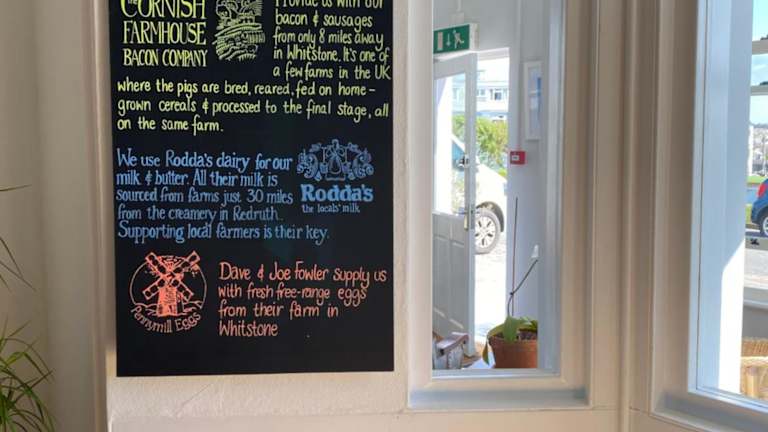 the CORNISH
FARMHOUSE
BACON COMPANY
Provide us with our
bacon & sausages
from only 8 miles away
in Whitstone. It's one of
a few farms in the UK
where the pigs are bred, reared, fed on home-
grown cereals & processed to the final stage, all
on the same farm.
We use Rodda's dairy for our
milk & butter. All their milk is
sourced from farms just 30 miles
from the creamery in Redruth.
Supporting local farmers is their key.
Rodda's
the locals' milk
Pennymill Eggs
Dave & Joe Fowler supply us
with fresh free-range eggs
from their farm in
Whitstone